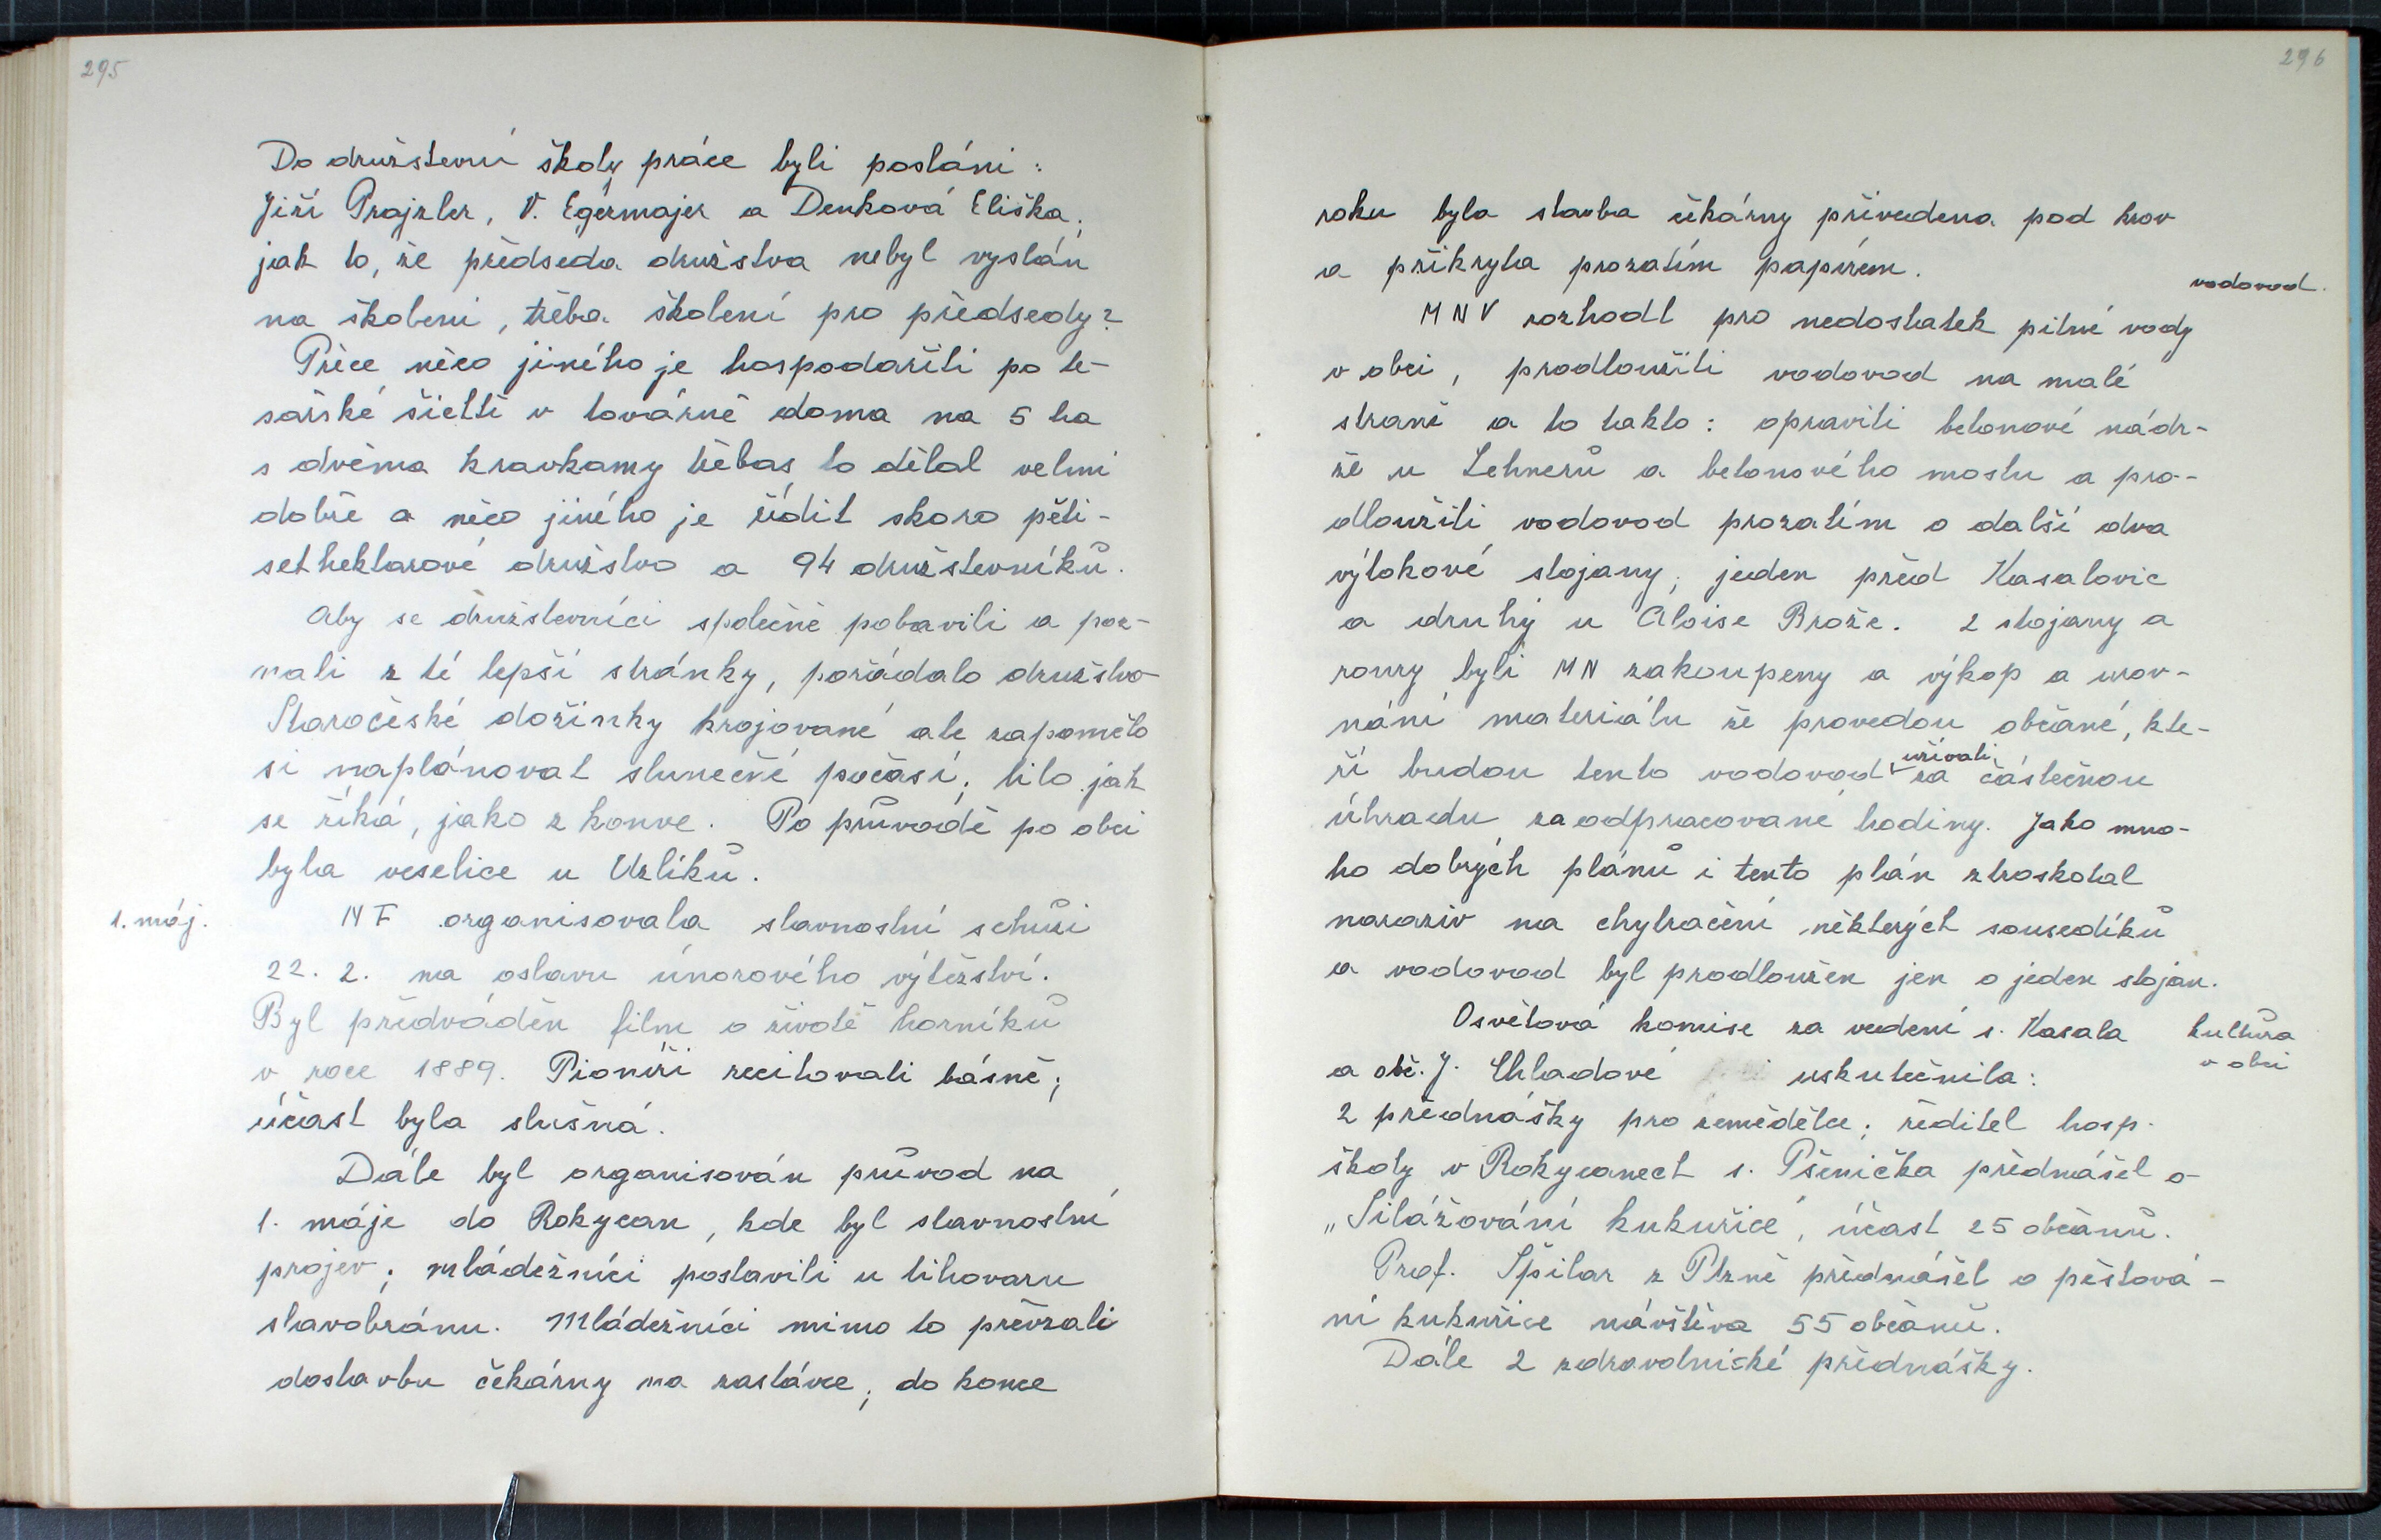 295
Do družstevní školy práce byli posláni:
Jiří Prajzler, V. Egermajer a Denková Eliška;
jak to, že předseda družstva nebyl vyslán
na školeni, třeba školení pro předsedy?
Přece něco jiného je hospodařiti po te-
sařské šichtě v továrně doma na 5 ha
s dvěma kravkamy třebas to dělal velmi
dobře a něco jiného je řídit skoro pěti-
sethektarové družstvo a 94 družstevníků.
Aby se družstevníci společně pobavili a poz-
nali z té lepší stránky, pořádalo družstvo
Staročeské dožinky krojované ale zapomělo
si naplánovat slunečné počasí; lilo jak
se říká, jako z konve. Po průvodě po obci
byla veselice u Uzlíků.
1. máj.
NF organisovala slavnostní schůzi
22. 2. na oslavu únorového výtězství.
Byl předváděn film o životě horníků
v roce 1889. Pionýři recitovali básně;
účast byla slušná.
Dále byl organisován průvod na
1. máje do Rokycan, kde byl slavnostní
projev; mládežníci postavili u lihovaru
slavobránu. Mládežníci mimo to převzali
dostavbu čekárny na zastávce; do konce
296
roku byla stavba čekárny přivedena pod krov
a přikryta prozatím papírem.
vodovod.
MNV rozhodl pro nedostatek pitné vody
v obci, prodloužiti vodovod na malé
straně a to takto: opraviti betonové nádr-
že u Lehnerů a betonového mostu a pro-
dloužiti vodovod prozatím o další dva
výtokové stojany; jeden před Kasalovic
a druhý u Aloise Brože. 2 stojany a
roury byli MN zakoupeny a výkop a urov-
nání materiálu že provedou občané, kte-
ří budou tento vodovod užívali za částečnou
úhradu za odpracované hodiny. Jako mno-
ho dobrých plánů i tento plán ztroskotal
narazív na chytračení některých sousedíků
a vodovod byl prodloužen jen o jeden stojan.
Osvětová komise za vedení s. Kasala
kultura
v obci
a obč. J. Chladové uskutečnila:
2 přednášky pro zemědělce; ředitel hosp.
školy v Rokycanech s. Pšenička přednášel o
„Silážování kukuřice", účast 25 občanů.
Prof. Špilar z Plzně přednášel o pěstová-
ní kukuřice návštěva 55 občanů.
Dále 2 zdravotnické přednášky.